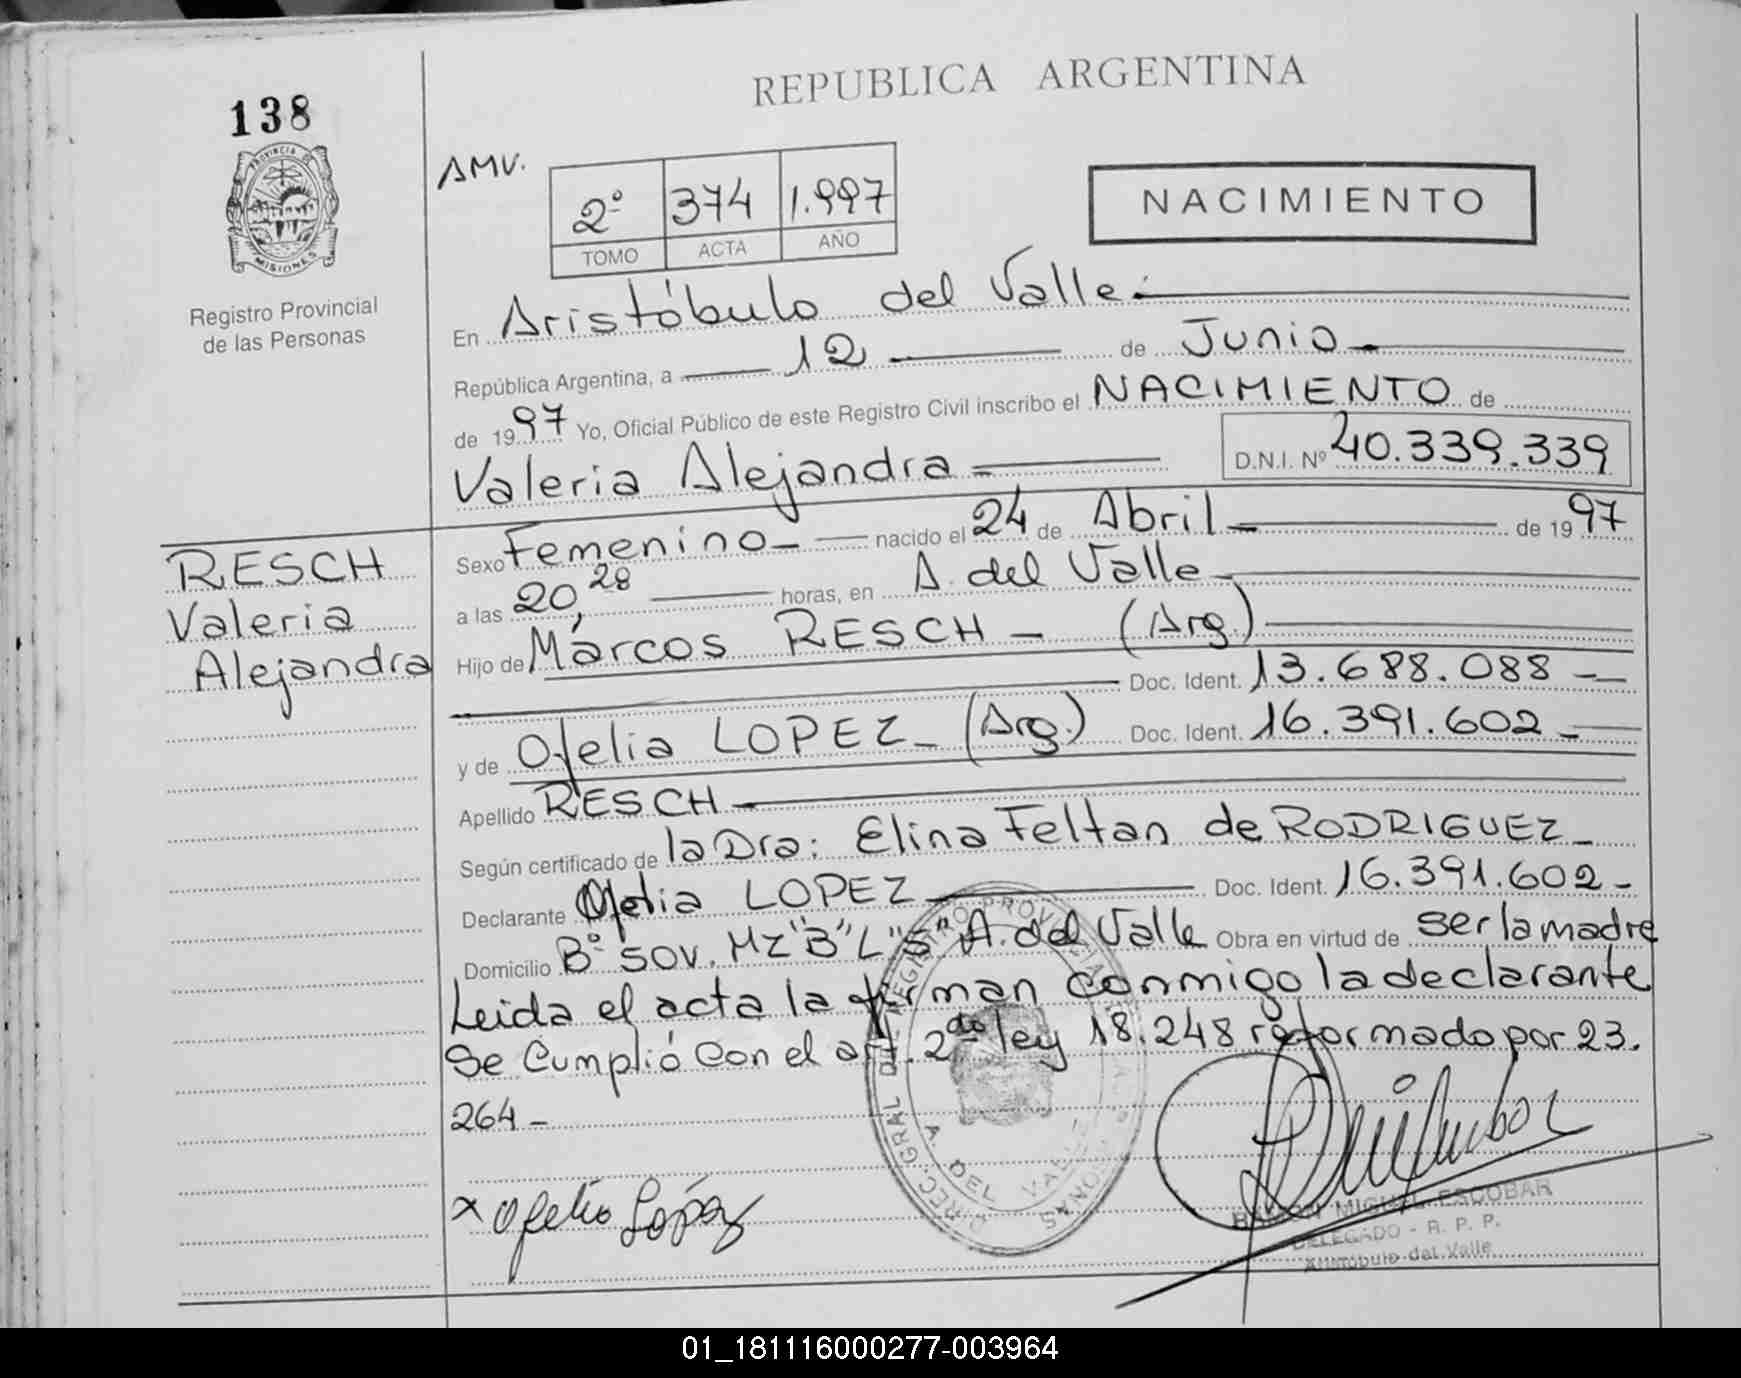 REPUBLICA ARGENTINA
138
PROVINCIA DE
MISIONES
Registro Provincial
de las Personas
AMV.
2º 374 1.997
TOMO ACTA AÑO
NACIMIENTO
En Aristóbulo del Valle.
República Argentina, a 12 de Junio
de 1997 Yo, Oficial Público de este Registro Civil inscribo el NACIMIENTO de
Valeria Alejandra D.N.I. Nº 40.339.339
RESCH
Valeria
Alejandra
Sexo Femenino nacido el 24 de Abril de 1997
a las 20,28 horas, en A. del Valle
Hijo de Marcos RESCH (Arg.)
Doc. Ident. 13.688.088
y de Ofelia LOPEZ (Arg.) Doc. Ident. 16.391.602
Apellido RESCH
Según certificado de la Dra: Elina Feltan de RODRIGUEZ
Declarante Ofelia LOPEZ Doc. Ident. 16.391.602
Domicilio Bº SOV. MZ "B" L "5" A. del Valle Obra en virtud de ser la madre
Leida el acta la firman conmigo la declarante
Se Cumplió con el art. 2do ley 18.248 reformado por 23.
264
x Ofelia López
DIREC. GRAL DEL REGISTRO PROVINCIAL
A. DEL VALLE
MISIONES
RAMON MIGUEL ESCOBAR
DELEGADO - R. P. P.
Aristóbulo del Valle
01_181116000277-003964